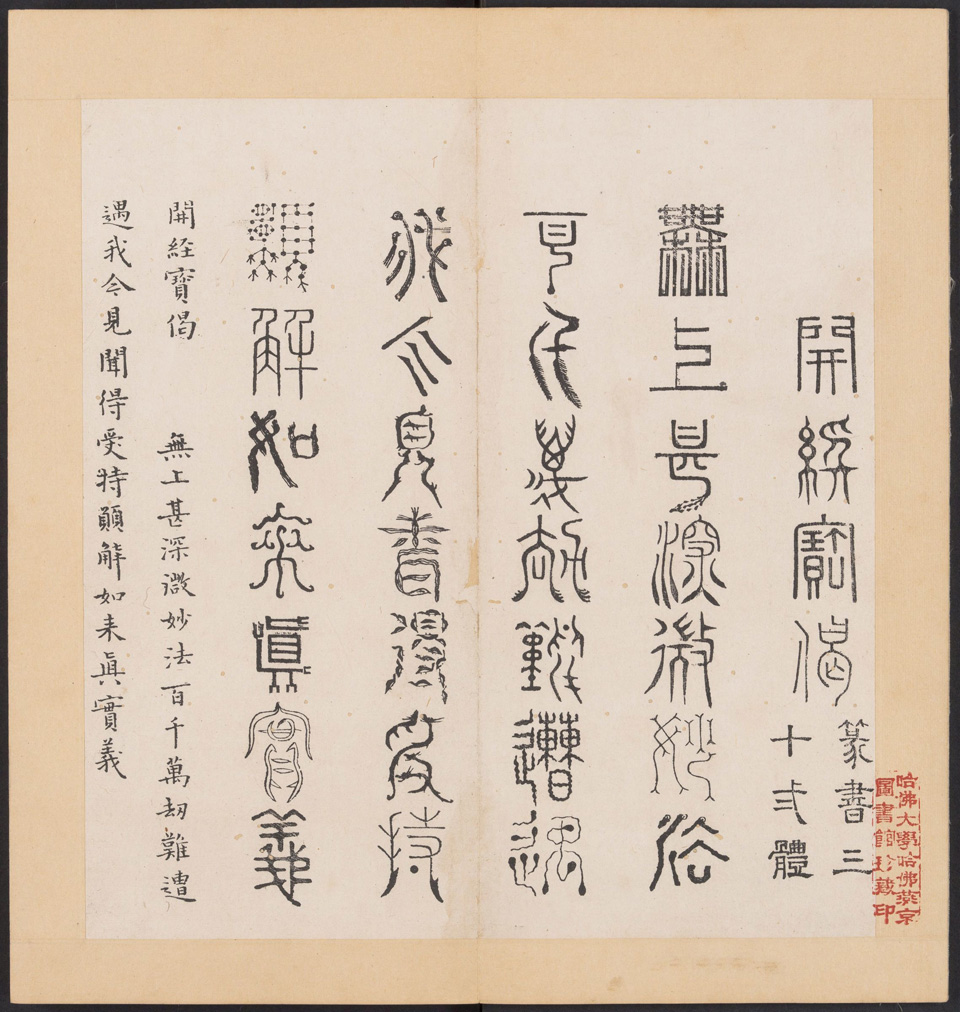 哈佛大學哈佛燕京
圖書館珍藏印
開經寶偈
篆書三
十弍體
無上甚深微妙法
百千萬劫難遭遇
我今見聞得受持
願解如來眞實義
開経寶偈 無上甚深微妙法百千萬劫難遭
遇我今見聞得受持願解如来眞實義